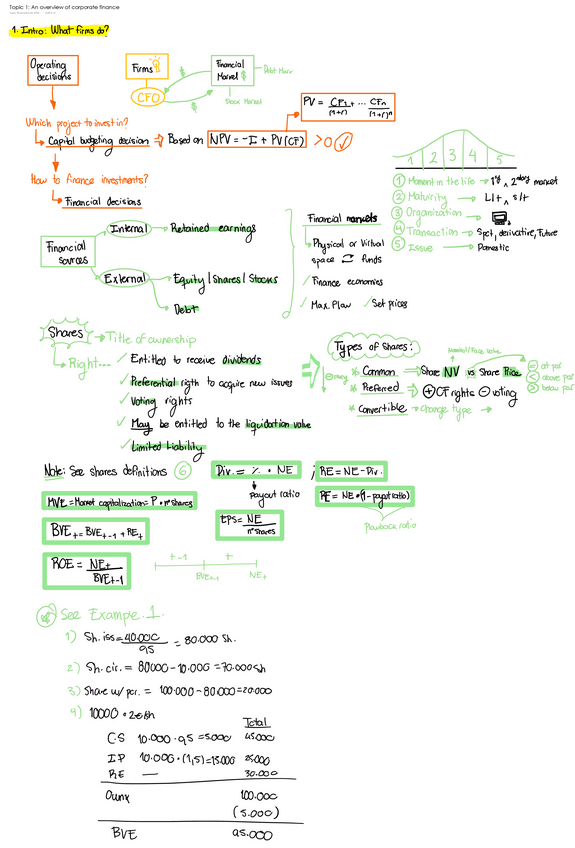 Topic 1: An overview of corporate finance
1. Intro: What firms do?
Operating decisions
Firms
CFO
Financial Market $
Debt Mar
Stock Market
$
$
PV = CF1/(1+r) + ... CFn/(1+r)^n
Which project to invest in?
Capital budgeting decision ⇒ Based on NPV = -I + PV(CF) > 0 ✓
How to finance investments?
Financial decisions
1 2 3 4 5
① Moment in the life → 1st ∧ 2ndary market
② Maturity → L|t ∧ s|t
③ Organization →
④ Transaction → Spot, derivative, Future
⑤ Issue → Domestic
Financial sources
Internal → Retained earnings
External → Equity | Shares | Stocks
Debt
Financial markets
Physical or Virtual space ⇄ funds
✓ Finance economies
✓ Max. Plow ✓ Set prices
Shares → Title of ownership
Right...
✓ Entitled to receive dividends
✓ Preferential rigth to acquire new issues
✓ Voting rights
✓ May be entitled to the liquidation value
✓ Limited Liability
Types of Shares:
Nominal/Face Value
* Common → Share NV vs Share Price
= at par
< above par
> below par
* Preferred → ⊕ CF rights ⊖ voting
* Convertible → Change type →
Note: See shares definitions ⑥
Div. = % · NE
payout ratio
; RE = NE - Div.
RE = NE · (1 - payout ratio)
Plowback ratio
MVE = Market capitalization = P · nº shares
EPS = NE / nº shares
BVEt = BVEt-1 + REt
ROE = NEt / BVEt-1
t-1 t
BVEt-1 NEt
See Example 1.
1) Sh. iss = 40.000 / 0,5 = 80.000 Sh.
2) Sh. cir. = 80000 - 10.000 = 70.000 sh
3) Share w/ par. = 100.000 - 80.000 = 20.000
4) 10000 · 2€/sh
Total
C.S 10.000 · 0,5 = 5.000 45.000
I P 10.000 · (1,5) = 15.000 25.000
RE — 30.000
100.000
(5.000)
BVE 95.000